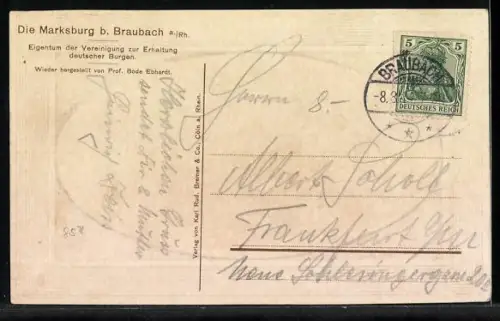 Die Marksburg b. Braubach a/Rh.
Eigentum der Vereinigung zur Erhaltung
deutscher Burgen.
Wieder hergestellt von Prof. Bodo Ebhardt.
Herzlichen Gruss
sendet Dir & Mutter
Verlag von Karl Rud. Bremer & Co., Cöln a. Rhein.
5 5
BRAUBACH
-8.8
DEUTSCHES REICH
Herrn 8.-
Albert Scholl
Frankfurt
Neue Schlesingergasse
858